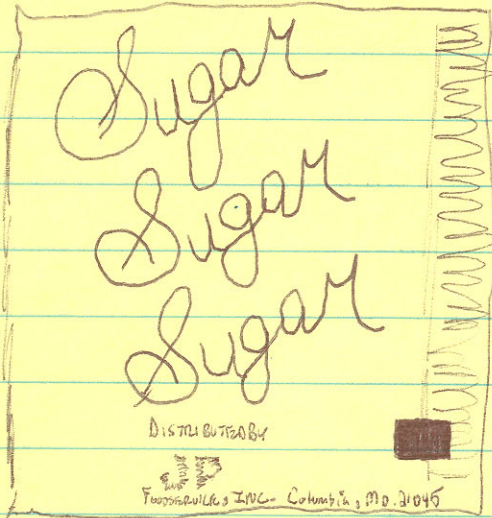 Sugar
Sugar
Sugar
DISTRIBUTED BY
FOODSERVICE, INC. Columbia, MD. 21045